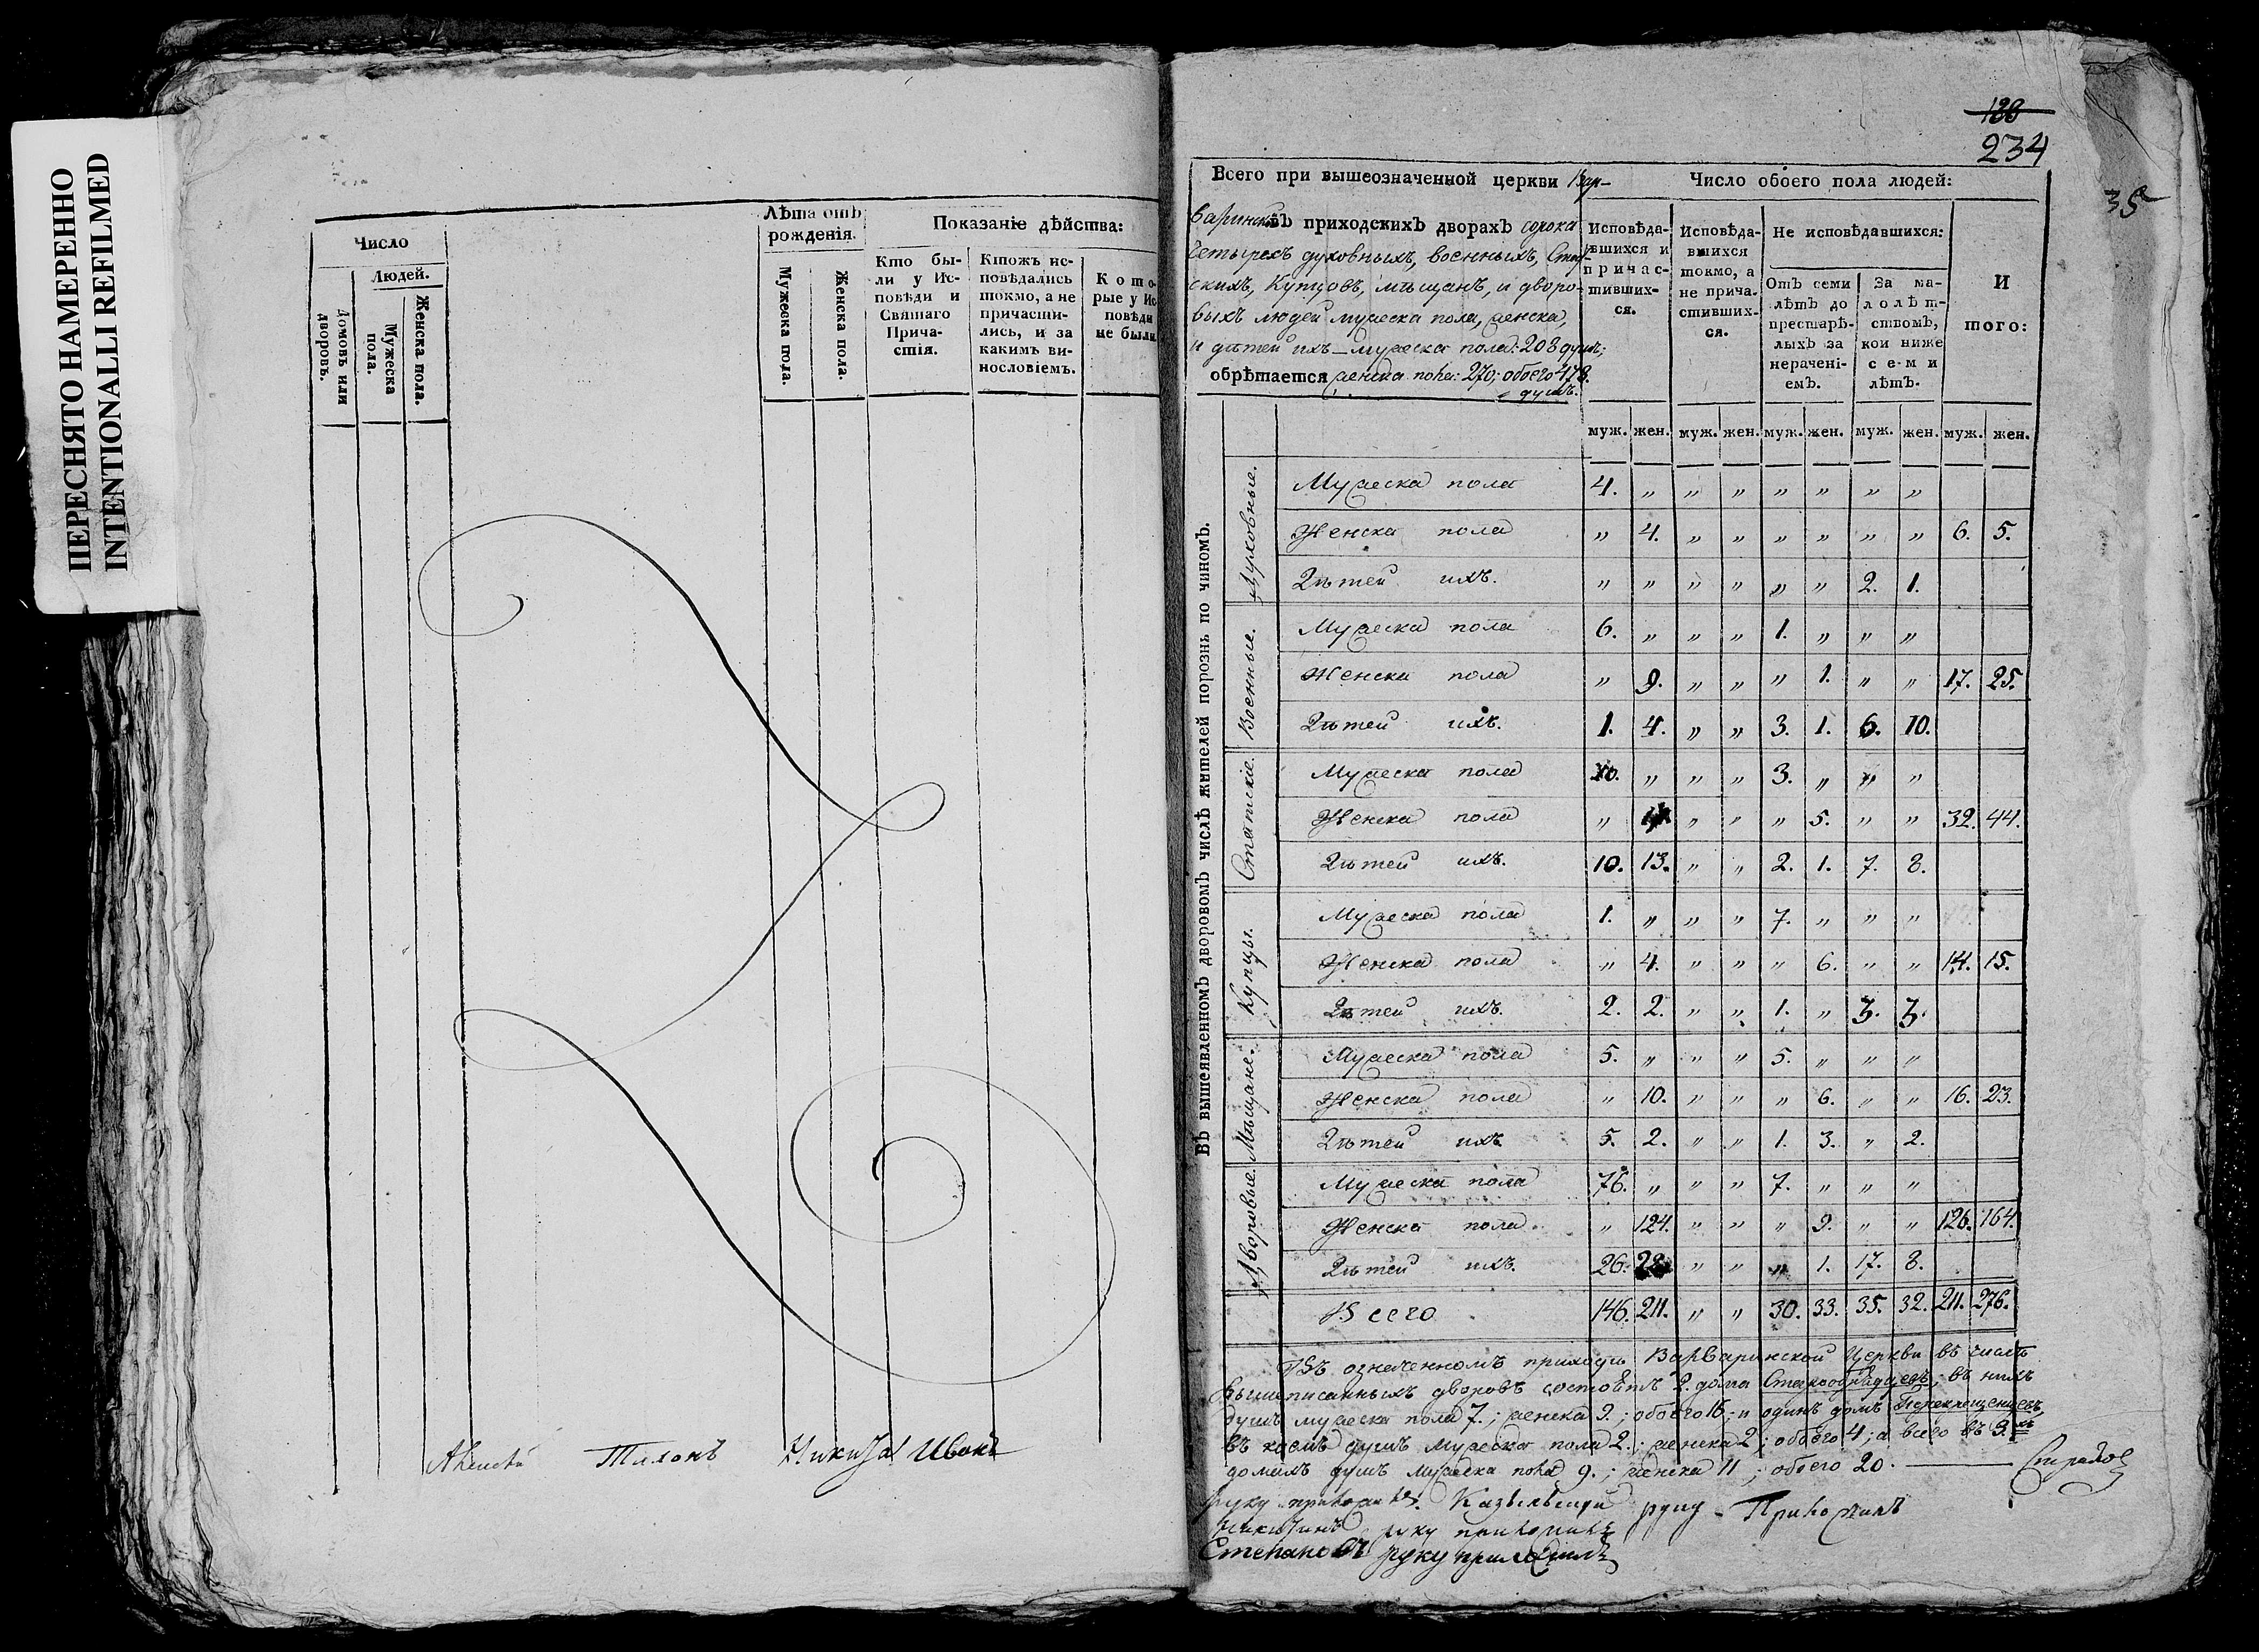 ПЕРЕСНЯТО НАМЕРЕННО
INTENTIONALLI REFILMED
Число
Людей.
Домовъ или дворовъ.
Мужеска пола.
Женска пола.
Лѣта отъ рожденія.
Мужеска пола.
Женска пола.
Показаніе дѣйства:
Кто бы-
ли у Ис-
повѣди и
Святаго
Прича-
стія.
Ктожъ ис-
повѣдались
токмо, а не
причасти-
лись, и за
какимъ ви-
нословіемъ.
Кото-
рые у Ис-
повѣди
не были.
138
234
35
Всего при вышеозначенной церкви Вар-
варинскъ приходскихъ дворахъ сорока
четырехъ духовныхъ, военныхъ, Стат-
скихъ, Купцовъ, мѣщанъ, и дворо-
выхъ людей мужеска пола, женска,
и дѣтей ихъ – мужеска пола: 208 душъ;
обрѣтается женска пола: 270; обоего 478.
душъ.
Число обоего пола людей:
Исповѣда-
вшихся и
причас-
тивших-
ся.
Исповѣда-
вшихся
токмо, а
не прича-
стивших-
ся.
Не исповѣдавшихся:
Отъ семи
лѣтъ до
престарѣ-
лыхъ за
нерачені-
емъ.
За ма-
лолѣт-
ствомъ,
кои ниже
семи
лѣтъ.
И
того:
муж. жен. муж. жен. муж. жен. муж. жен. муж. жен.
Въ вышеявленномъ дворовомъ числѣ жителей порознь по чиномъ.
Духовные.
Мужеска пола 4. " " " " " " "
Женска пола " 4. " " " " " " 6. 5.
Дѣтей ихъ. " " " " " " 2. 1.
Военные.
Мужеска пола 6. " " " 1. " " "
Женска пола " 9. " " " 1. " " 17. 25.
Дѣтей ихъ. 1. 4. " " 3. 1. 6. 10.
Статскіе.
Мужеска пола 10. " " " 3. " " "
Женска пола " " " " 5. " " 32. 44.
Дѣтей ихъ. 10. 13. " " 2. 1. 7. 8.
Купцы.
Мужеска пола 1. " " " 7. " " "
Женска пола " 4. " " " 6. " " 14. 15.
Дѣтей ихъ. 2. 2. " " 1. " 3. 3.
Мѣщане.
Мужеска пола 5. " " " 5. " " "
Женска пола " 10. " " " 6. " " 16. 23.
Дѣтей ихъ 5. 2. " " 1. 3. " 2.
Дворовые.
Мужеска пола 76. " " " 7. " " "
Женска пола " 124. " " " 9. " " 126. 164.
Дѣтей ихъ. 26. 22. " " " 1. 17. 8.
Всего 146. 211. " " 30. 33. 35. 32. 211. 276.
Въ означенномъ приходѣ Варваринской Церкви въ числѣ
вышеписанныхъ дворовъ состоѣтъ 2. дома Старообрядцевъ; въ нихъ
душъ мужеска пола 7.; женска 9.; обоего 16; и одинъ домъ Перекрещенцевъ,
въ коемъ душъ мужеска пола 2.; женска 2; обоего 4; а всего въ 3.хъ
домахъ душъ мужеска пола 9.; женска 11; обоего 20.
Алексѣй Тихонъ Никита Иванъ
руку приложилъ. руку Приложилъ
Никитинъ руку приложилъ
Степановъ руку приложилъ